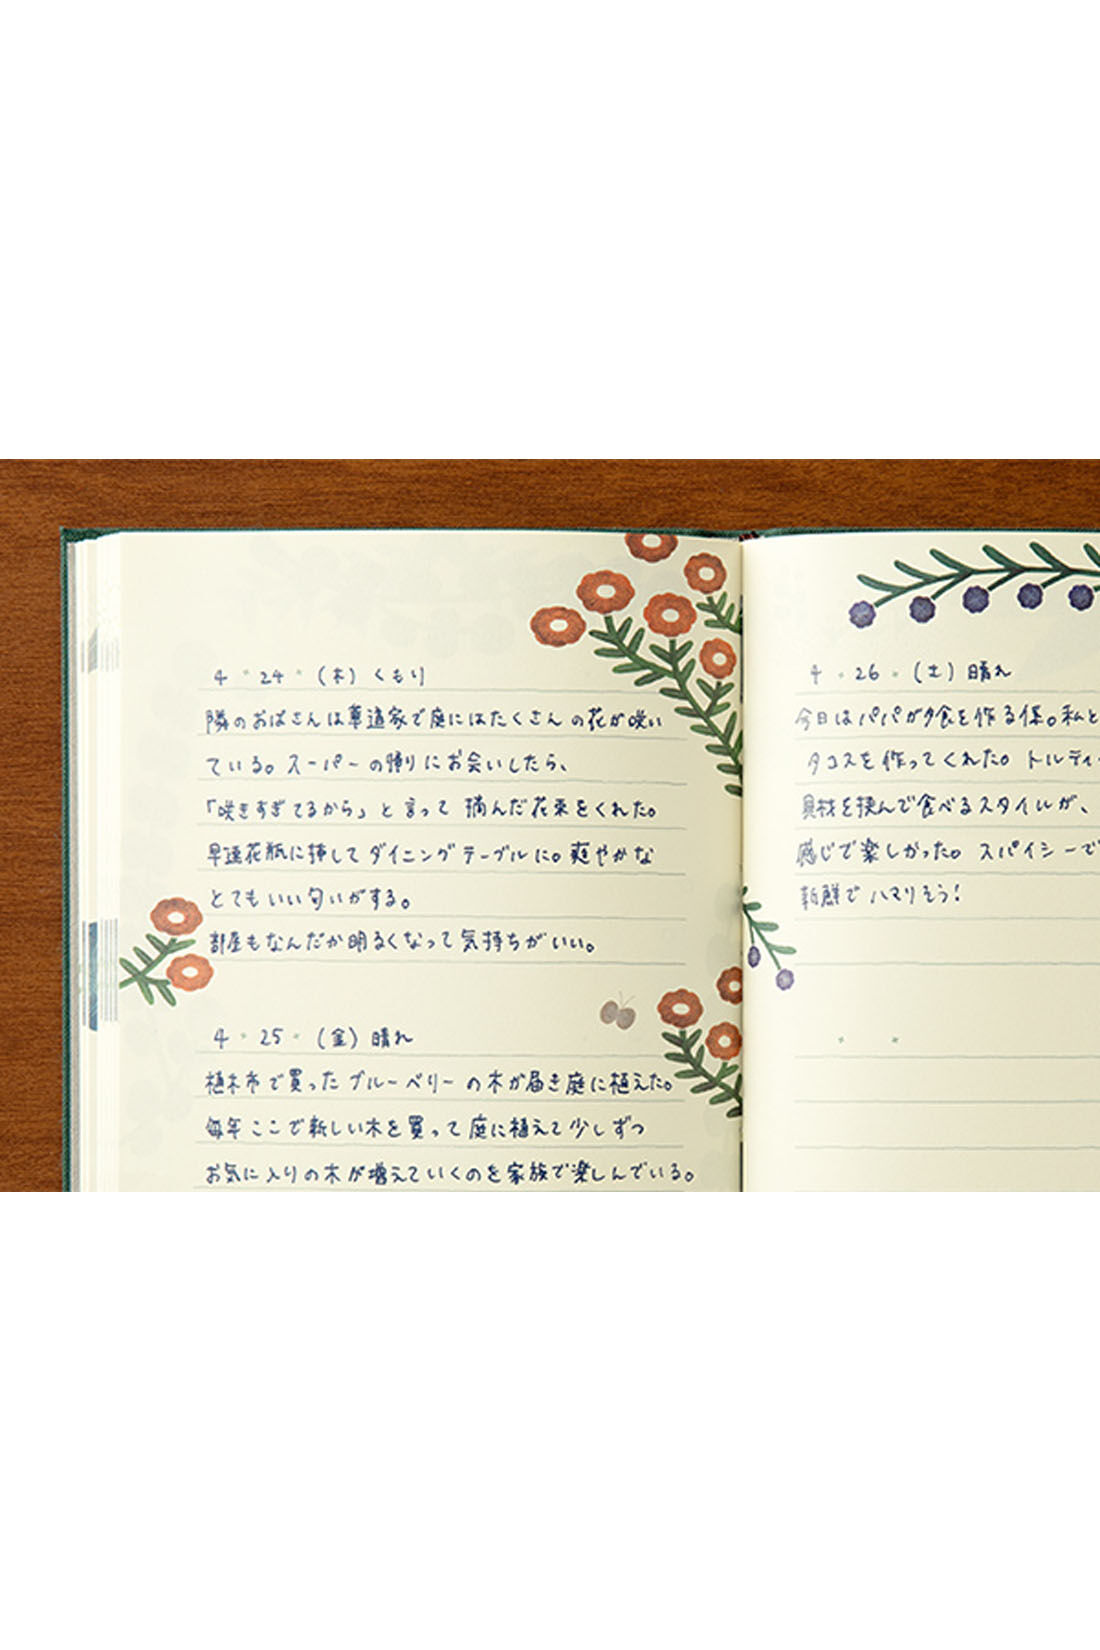 4 24 (木) くもり
隣のおばさんは草道家で庭にはたくさんの花が咲い
ている。スーパーの帰りにお会いしたら、
「咲きすぎてるから」と言って 摘んだ花束をくれた。
早速花瓶に挿してダイニングテーブルに。爽やかな
とてもいい匂いがする。
部屋もなんだか明るくなって気持ちがいい。
4 25 (金) 晴れ
植木市で買ったブルーベリーの木が届き庭に植えた。
毎年ここで新しい木を買って庭に植えて少しずつ
お気に入りの木が増えていくのを家族で楽しんでいる。
4 26 (土) 晴れ
今日はパパが夕食を作る係。私と
タコスを作ってくれた。トルティ
具材を挟んで食べるスタイルが、
感じで楽しかった。スパイシーで
新鮮でハマりそう!